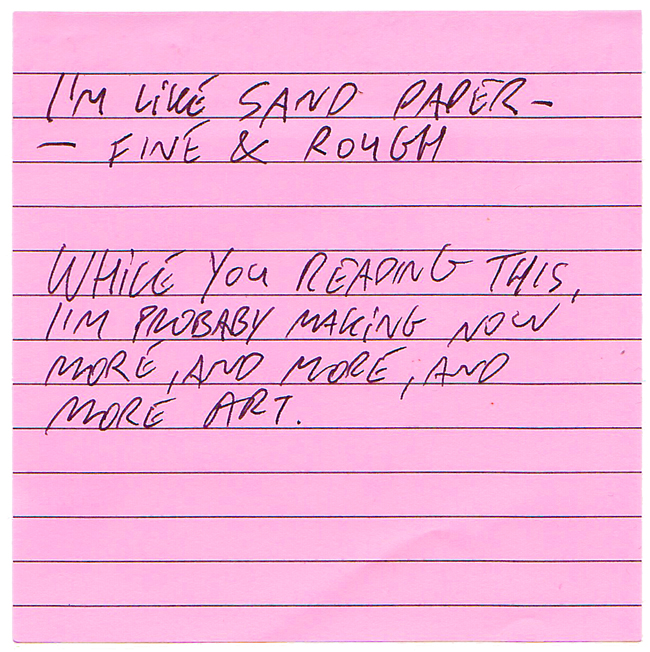 I'M LIKE SAND PAPER-
- FINE & ROUGH
WHILE YOU READING THIS,
I'M PROBABY MAKING NOW
MORE, AND MORE, AND
MORE ART.